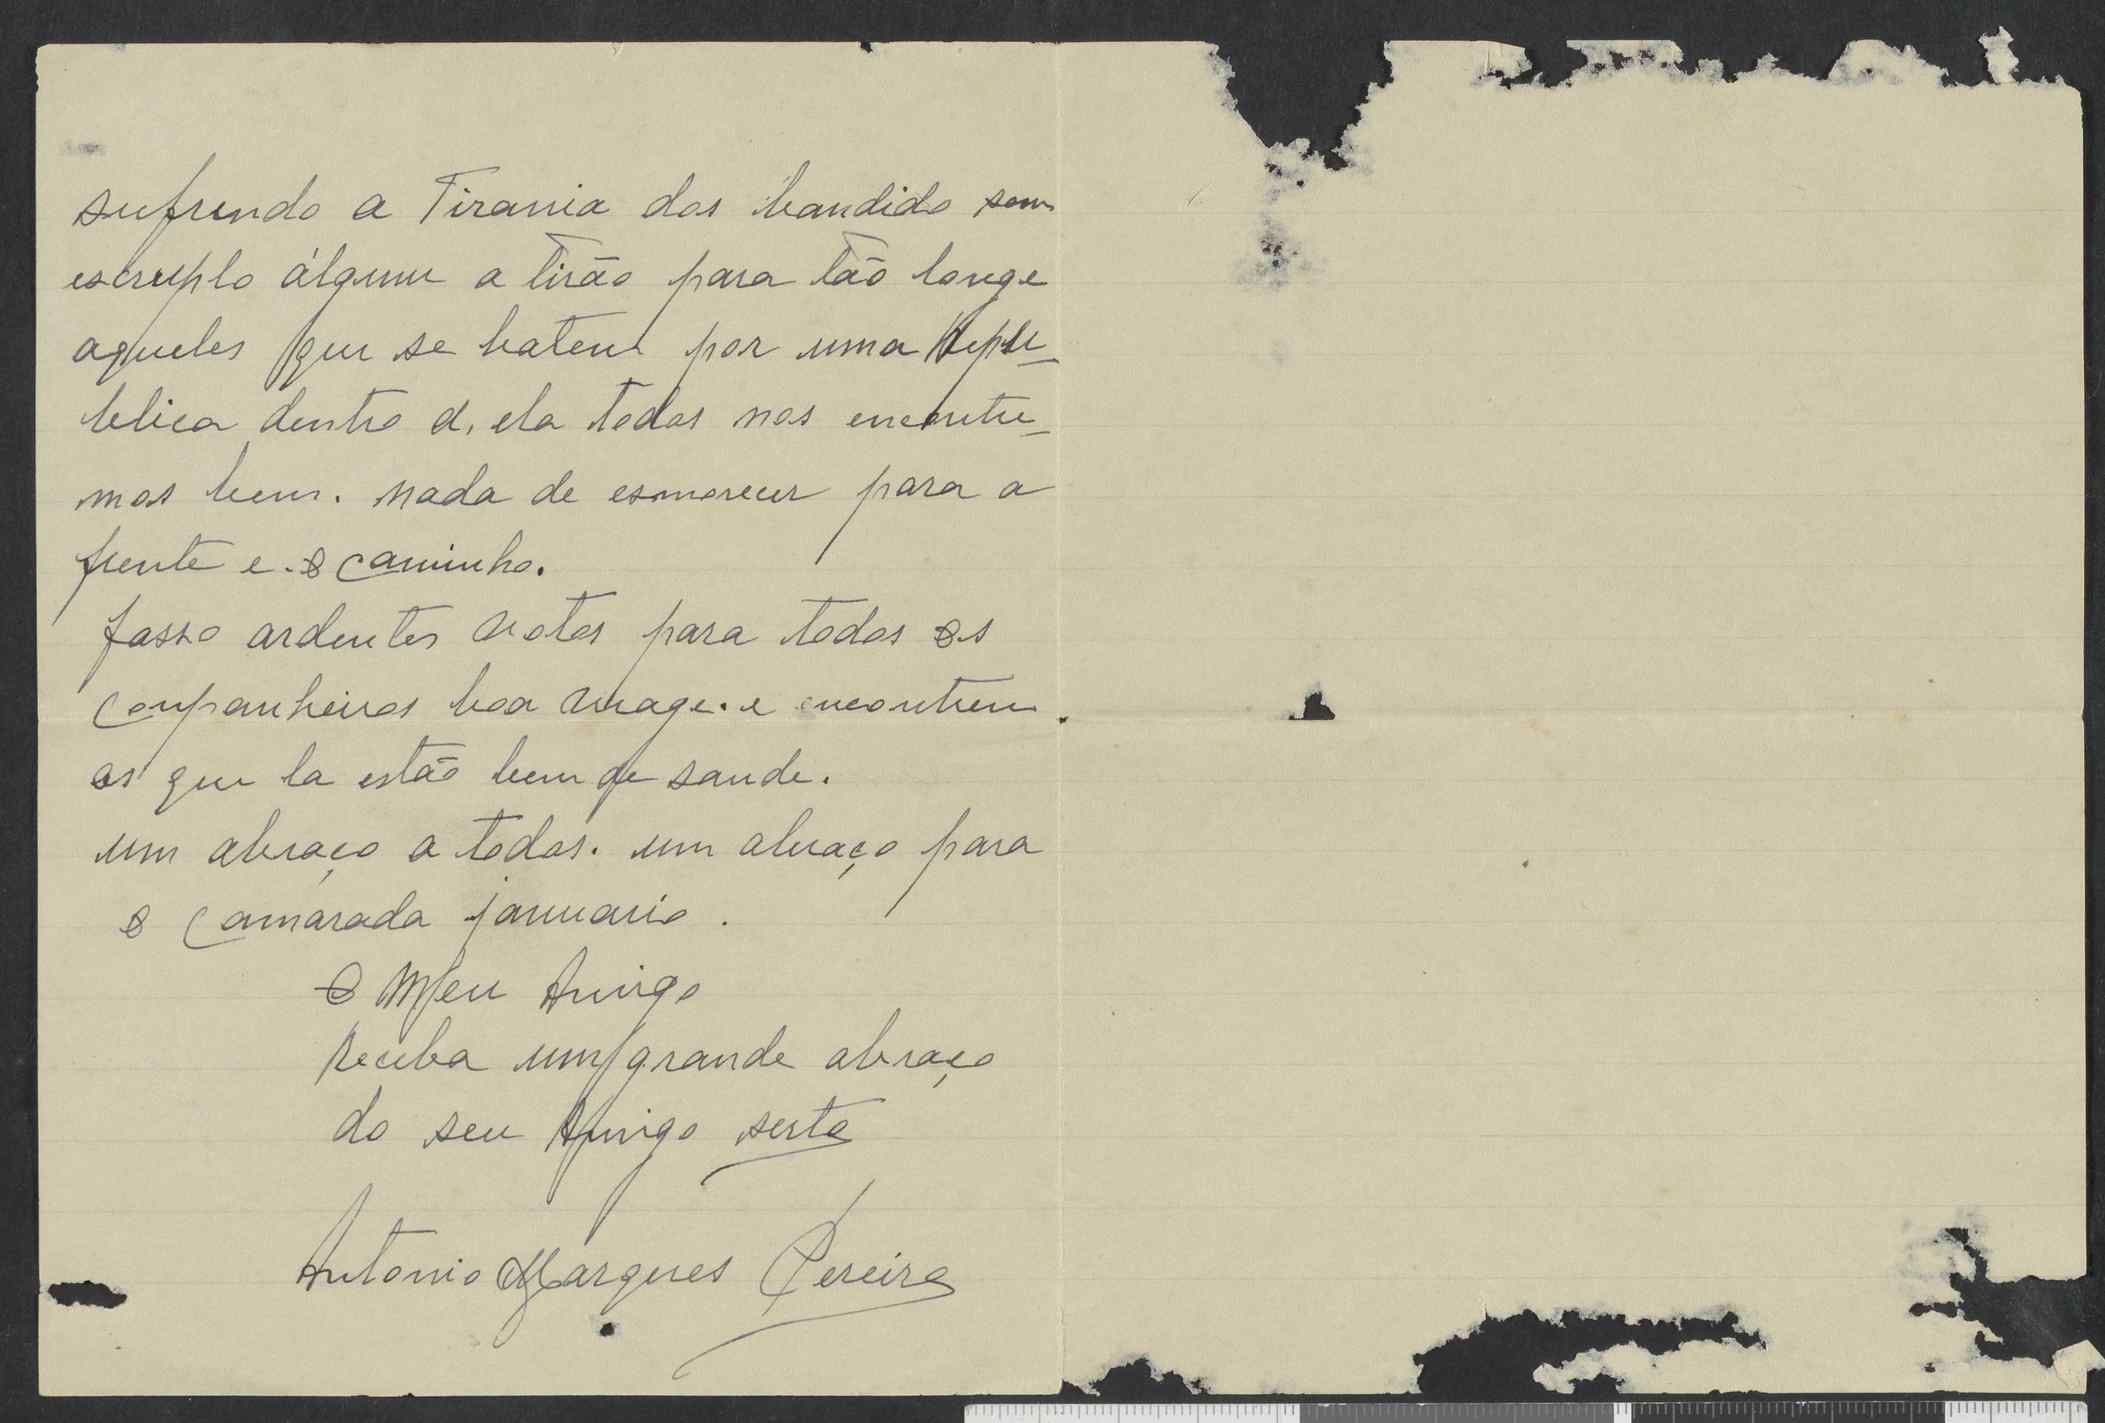 sufrendo a Tirania dos bandido sem
escruplo álgum a tirão para tão longe
aqueles que se batem por uma Repu-
blica dentro d, ela todos nos encontre-
mos bem. nada de esmorecer para a
frente e. o caminho.
fasso ardentes votos para todos os
companheiros boa viage. e encontrem
os que la estão bem de saude.
um abraço a todos. um abraço para
o camarada januario.
O Meu Amigo
Receba um grande abraço
do seu Amigo serto
Antonio Marques Pereira